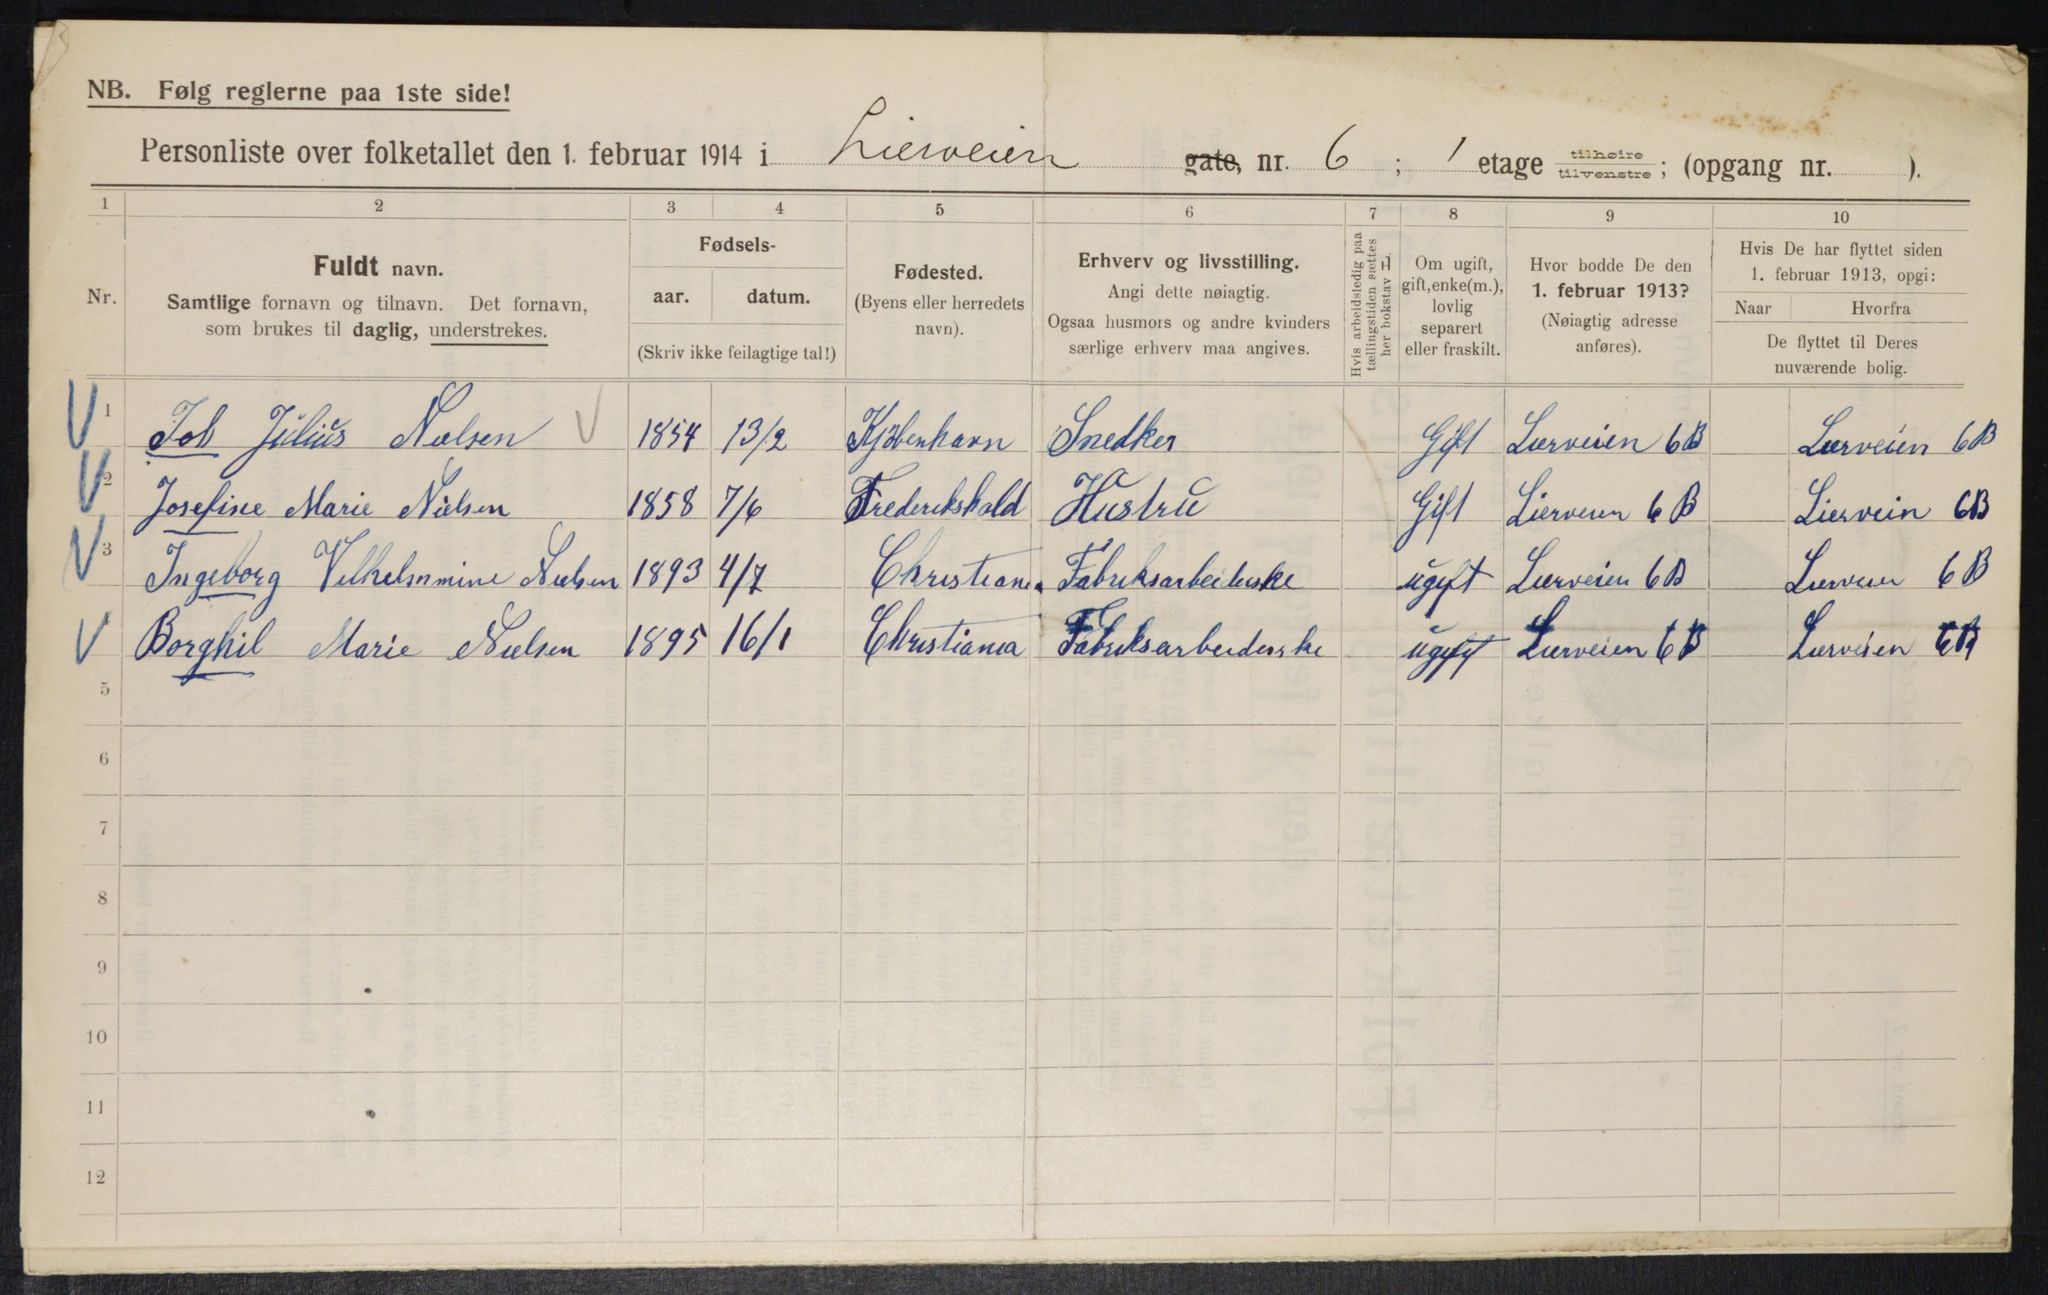 NB. Følg reglerne paa 1ste side!
Personliste over folketallet den 1. februar 1914 i Lierveien gate, nr. 6 ; 1 etage tilhøire tilvenstre ; (opgang nr. ).
1 2 3 4 5 6 7 8 9 10
Nr.
Fuldt navn.
Samtlige fornavn og tilnavn. Det fornavn,
som brukes til daglig, understrekes.
Fødsels-
aar. datum.
(Skriv ikke feilagtige tal!)
Fødested.
(Byens eller herredets
navn).
Erhverv og livsstilling.
Angi dette nøiagtig.
Ogsaa husmors og andre kvinders
særlige erhverv maa angives.
Hvis arbeidsledig paa
tællingstiden sættes
her bokstav L.
Om ugift,
gift, enke(m.),
lovlig
separert
eller fraskilt.
Hvor bodde De den
1. februar 1913?
(Nøiagtig adresse
anføres).
Hvis De har flyttet siden
1. februar 1913, opgi:
Naar Hvorfra
De flyttet til Deres
nuværende bolig.
1 Job Julius Nielsen 1854 13/2 Kjöbenhavn Snedker Gift Lierveien 6B Lierveien 6B
2 Josefine Marie Nielsen 1858 7/6 Frederikshald Hustru Gift Lierveien 6B Liervein 6B
3 Ingeborg Vilhelmmine Nielsen 1893 4/7 Christiania Fabriksarbeiderske ugift Lierveien 6B Lierveien 6B
Borghil Marie Nielsen 1895 16/1 Christiania Fabriksarbeiderske ugift Lierveien 6B Lierveien 6B
5
6
7
8
9
10
11
12